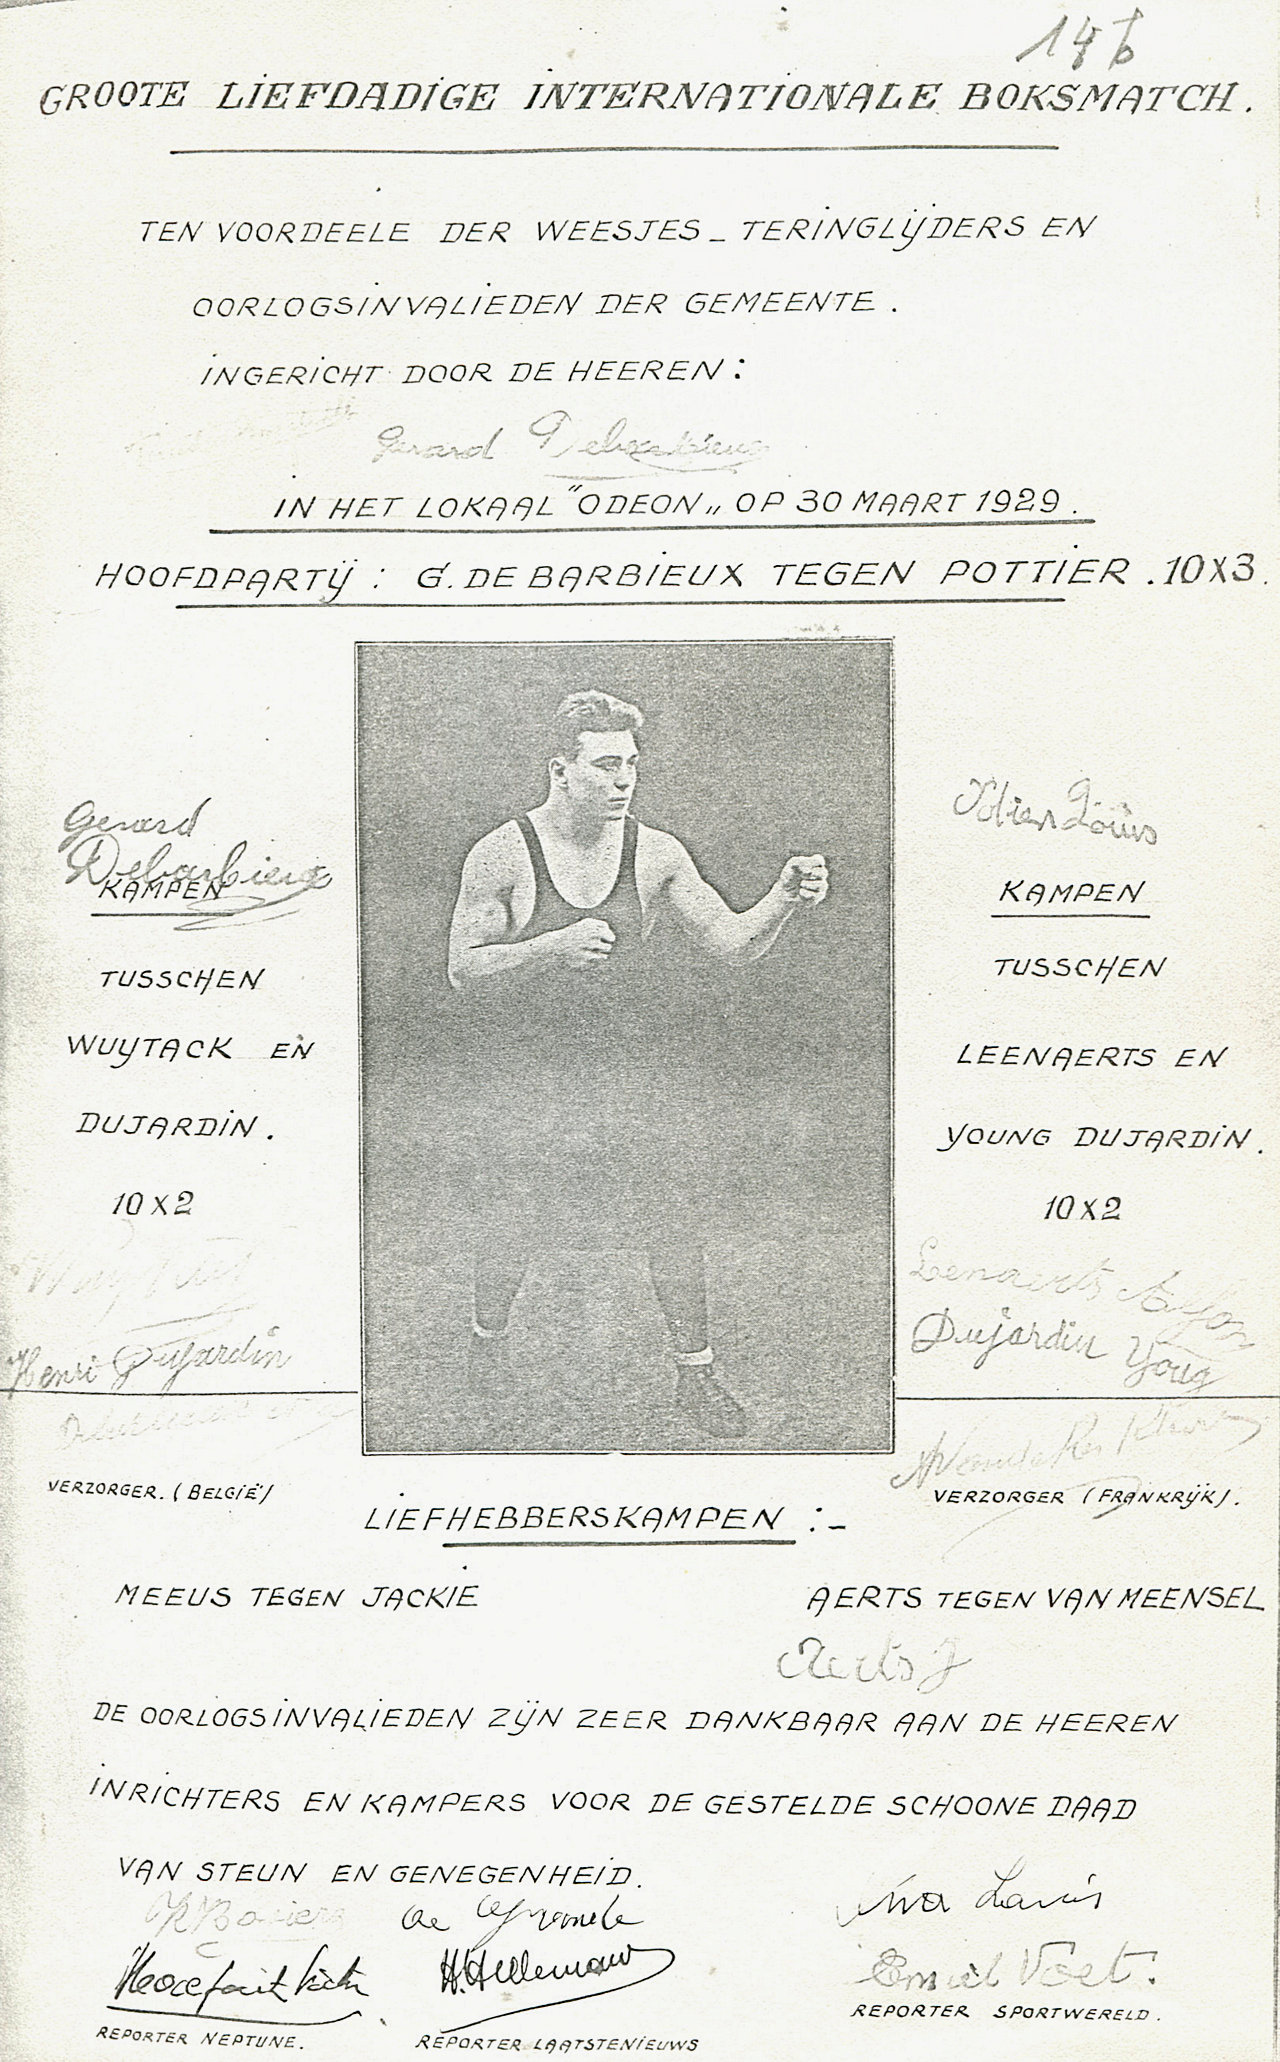 146
GROOTE LIEFDADIGE INTERNATIONALE BOKSMATCH.
TEN VOORDEELE DER WEESJES – TERINGLIJDERS EN
OORLOGSINVALIEDEN DER GEMEENTE.
INGERICHT DOOR DE HEEREN:
Gerard Debarbieux
IN HET LOKAAL "ODEON„ OP 30 MAART 1929.
HOOFDPARTIJ : G. DE BARBIEUX TEGEN POTTIER. 10X3.
Gerard
Debarbieux
KAMPEN
TUSSCHEN
WUYTACK EN
DUJARDIN.
10X2
Henri Dujardin
VERZORGER. (BELGIË)
KAMPEN
TUSSCHEN
LEENAERTS EN
YOUNG DUJARDIN.
10X2
Lenaerts
Dujardin Youg
VERZORGER (FRANKRIJK).
LIEFHEBBERSKAMPEN :–
MEEUS TEGEN JACKIE
AERTS TEGEN VAN MEENSEL
Aerts J
DE OORLOGSINVALIEDEN ZIJN ZEER DANKBAAR AAN DE HEEREN
INRICHTERS EN KAMPERS VOOR DE GESTELDE SCHOONE DAAD
VAN STEUN EN GENEGENHEID.
H. Hellemans
Emiel Voet.
REPORTER NEPTUNE.
REPORTER LAATSTENIEUWS
REPORTER SPORTWERELD.